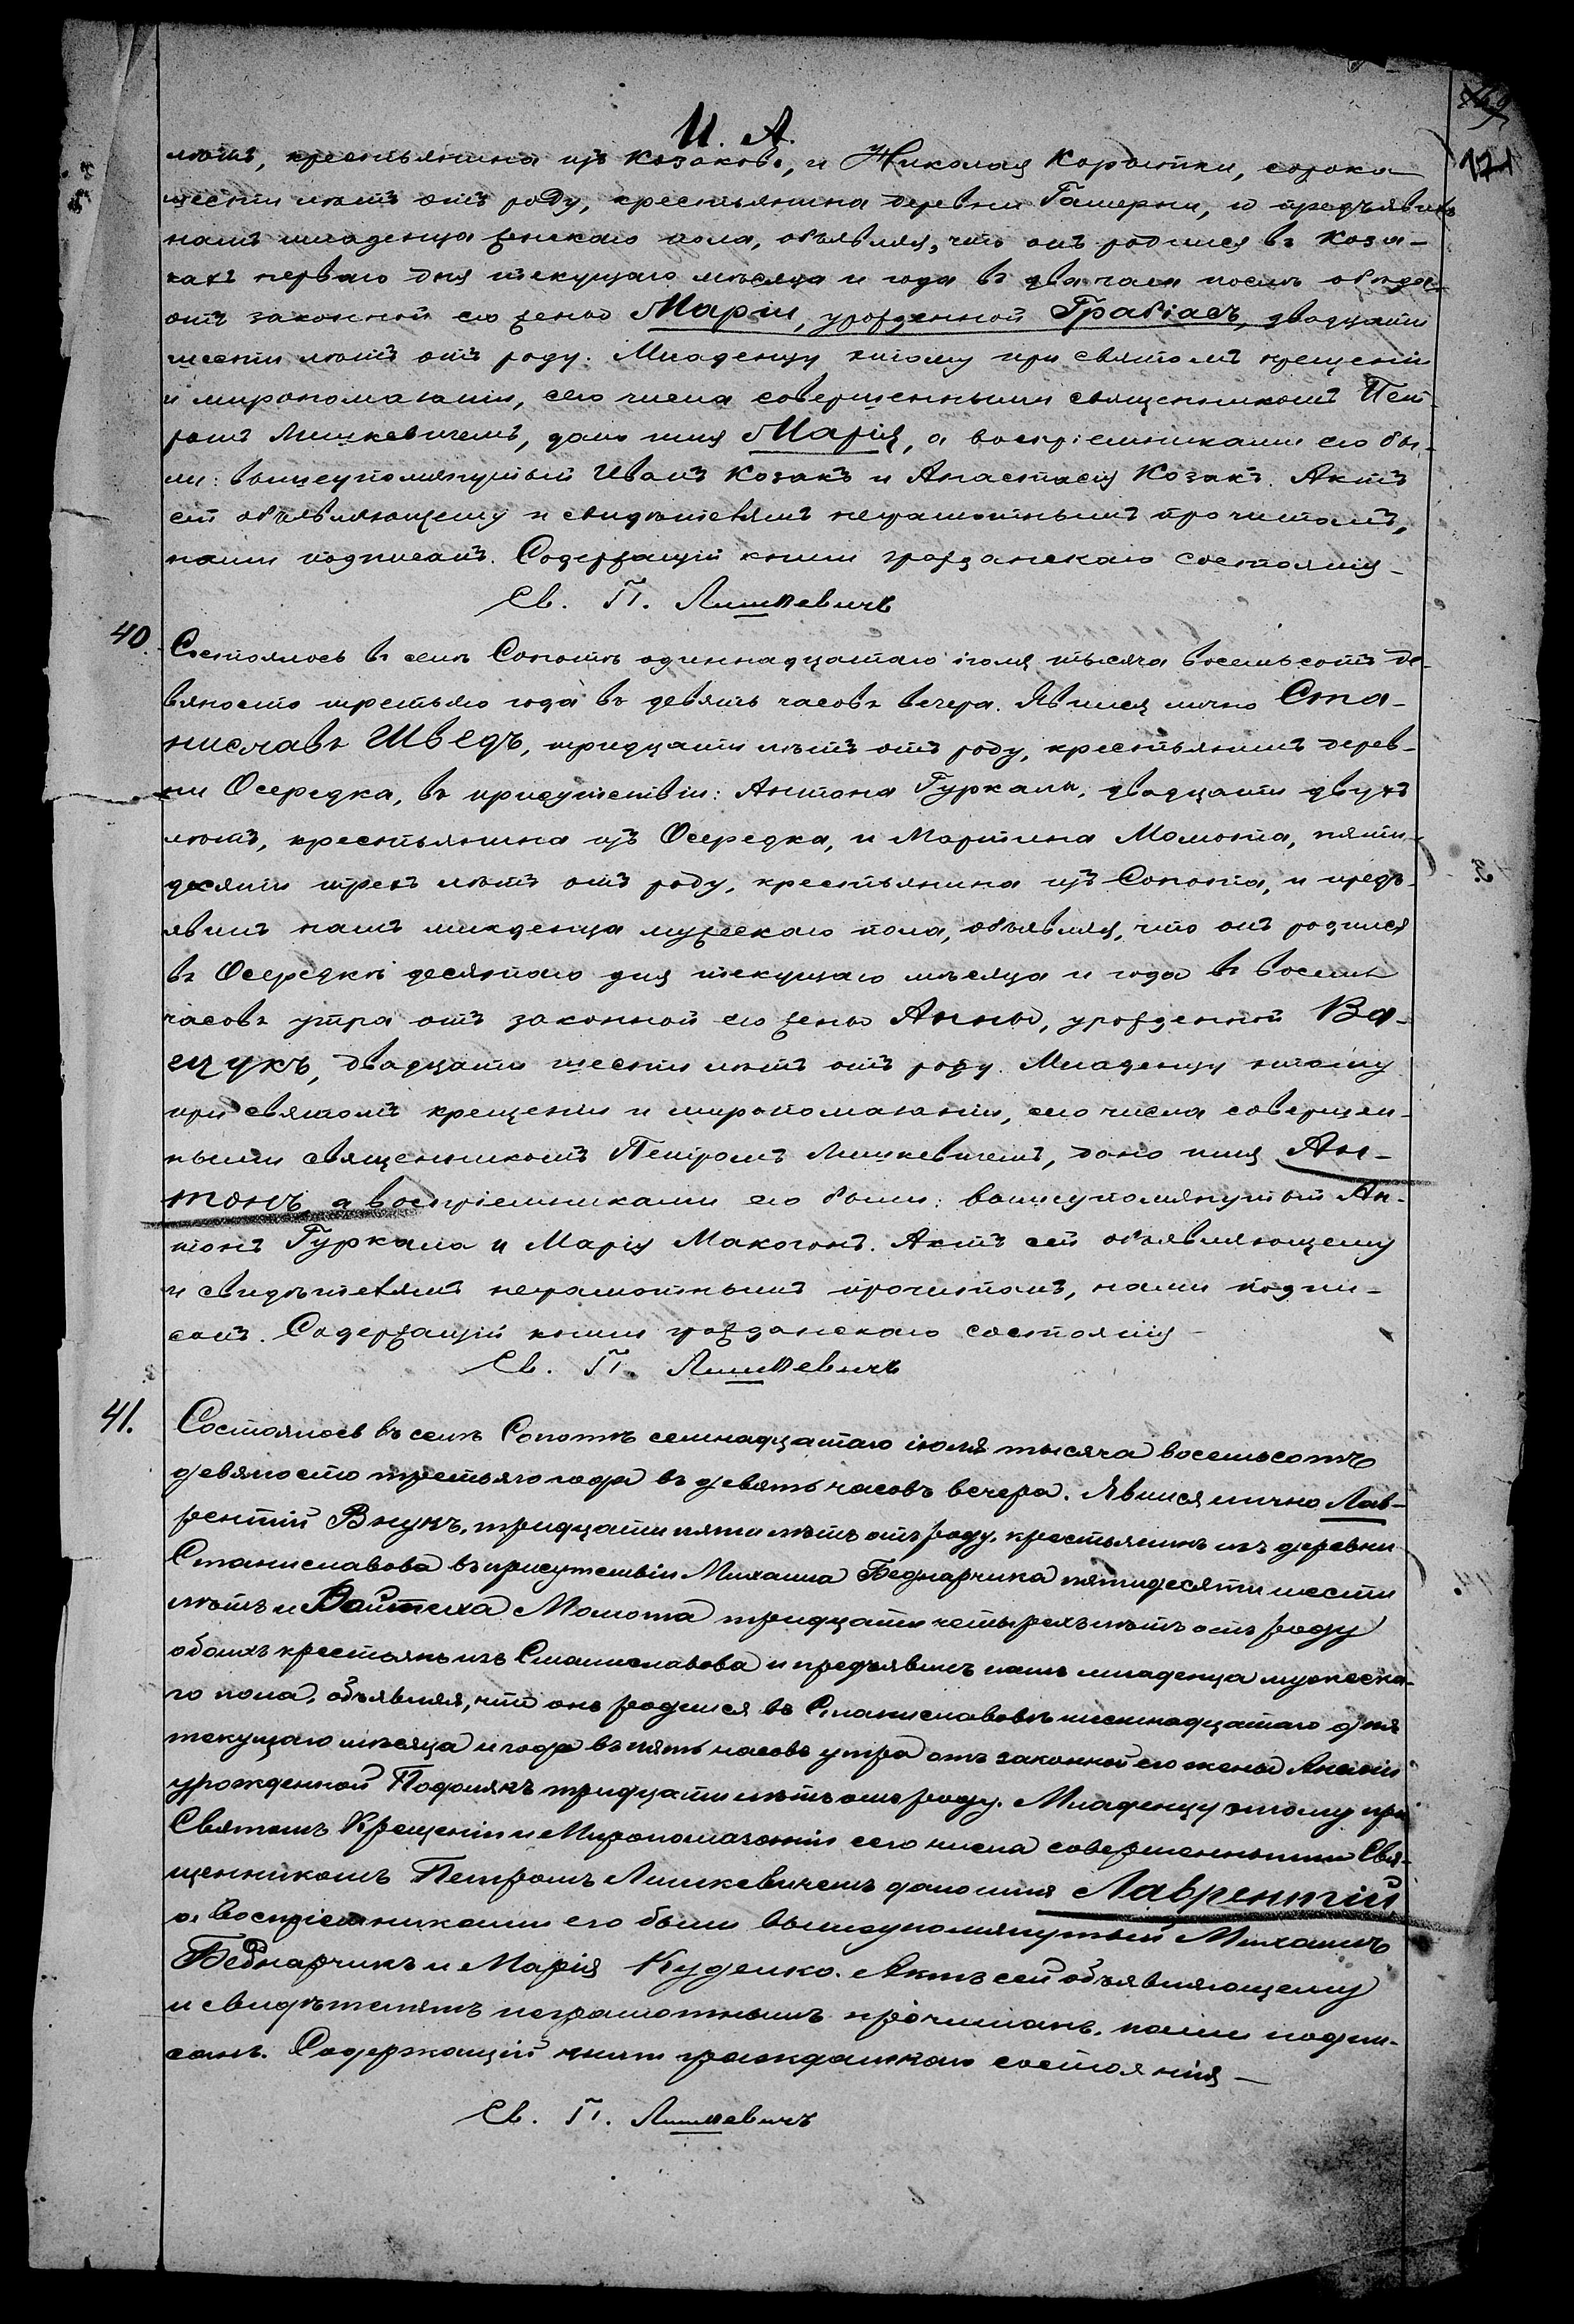 И. А.
121
лѣтъ, крестьянина изъ Козаковъ, и Николая Коротки, сорока
шести лѣтъ отъ роду, крестьянина деревни Гамерни, и предъявилъ
намъ младенца женскаго пола, объявляя, что онъ родился въ Коза-
кахъ перваго дня текущаго мѣсяца и года въ два часа послѣ обѣда
отъ законной его жены Маріи, урожденной Грабіасъ, двадцати
шести лѣтъ отъ роду. Младенцу этому при святомъ крещеніи
и миропомазаніи, сего числа совершенными священникомъ Пет-
ромъ Лишкевичемъ, дано имя Марія, а воспріемниками его бы-
ли: вышеупомянутый Иванъ Козакъ и Анастасія Козакъ. Актъ
сей объявляющему и свидѣтелямъ неграмотнымъ прочитанъ,
нами подписанъ. Содержащій книги гражданскаго состоянія –
Св. П. Лишкевичъ
40. Состоялось въ селѣ Сопотѣ одиннадцатаго іюля тысяча восемьсотъ де-
вяносто третьяго года въ девять часовъ вечера. Явился лично Ста-
ниславъ Шведъ, тридцати лѣтъ отъ роду, крестьянинъ дерев-
ни Осередка, въ присутствіи: Антона Гуркалы, двадцати двухъ
лѣтъ, крестьянина изъ Осередка, и Мартина Момота, пяти-
десяти трехъ лѣтъ отъ роду, крестьянина изъ Сопота, и предъ-
явилъ намъ младенца мужескаго пола, объявляя, что онъ родился
въ Осередкѣ десятаго дня текущаго мѣсяца и года въ восемь
часовъ утра отъ законной его жены Анны, урожденной Ва-
щукъ, двадцати шести лѣтъ отъ роду. Младенцу этому
при святомъ крещеніи и миропомазаніи, сего числа совершен-
ными священникомъ Петромъ Лишкевичемъ, дано имя Ан-
тонъ, а воспріемниками его были: вышеупомянутый Ан-
тонъ Гуркала и Марія Макогонъ. Актъ сей объявляющему
и свидѣтелямъ неграмотнымъ прочитанъ, нами подпи-
санъ. Содержащій книги гражданскаго состоянія –
Св. П. Лишкевичъ
41. Состоялось въ селѣ Сопотѣ семнадцатаго іюля тысяча восемьсотъ
девяносто третьяго года въ девять часовъ вечера. Явился лично Лав-
рентій Внукъ, тридцати пяти лѣтъ отъ роду, крестьянинъ изъ деревни
Станиславова въ присутствіи Михаила Беднарчика пятидесяти шести
лѣтъ и Войтеха Момота тридцати четырехъ лѣтъ отъ роду
обоихъ крестьянъ изъ Станиславова и предъявилъ намъ младенца мужеска-
го пола, объявляя, что онъ родился въ Станиславовѣ шестнадцатаго дня
текущаго мѣсяца и года въ пять часовъ утра отъ законной его жены
урожденной Подолякъ тридцати лѣтъ отъ роду. Младенцу этому при
Святомъ Крещеніи и Миропомазаніи сего числа совершенными Свя-
щенникомъ Петромъ Лишкевичемъ дано имя Лаврентій,
а Воспріемниками его были вышеупомянутый Михаилъ
Беднарчикъ и Марія Куделко. Актъ сей объявляющему
и свидѣтелямъ неграмотнымъ прочитанъ, нами подпи-
санъ. Содержащій книги гражданскаго состоянія –
Св. П. Лишкевичъ